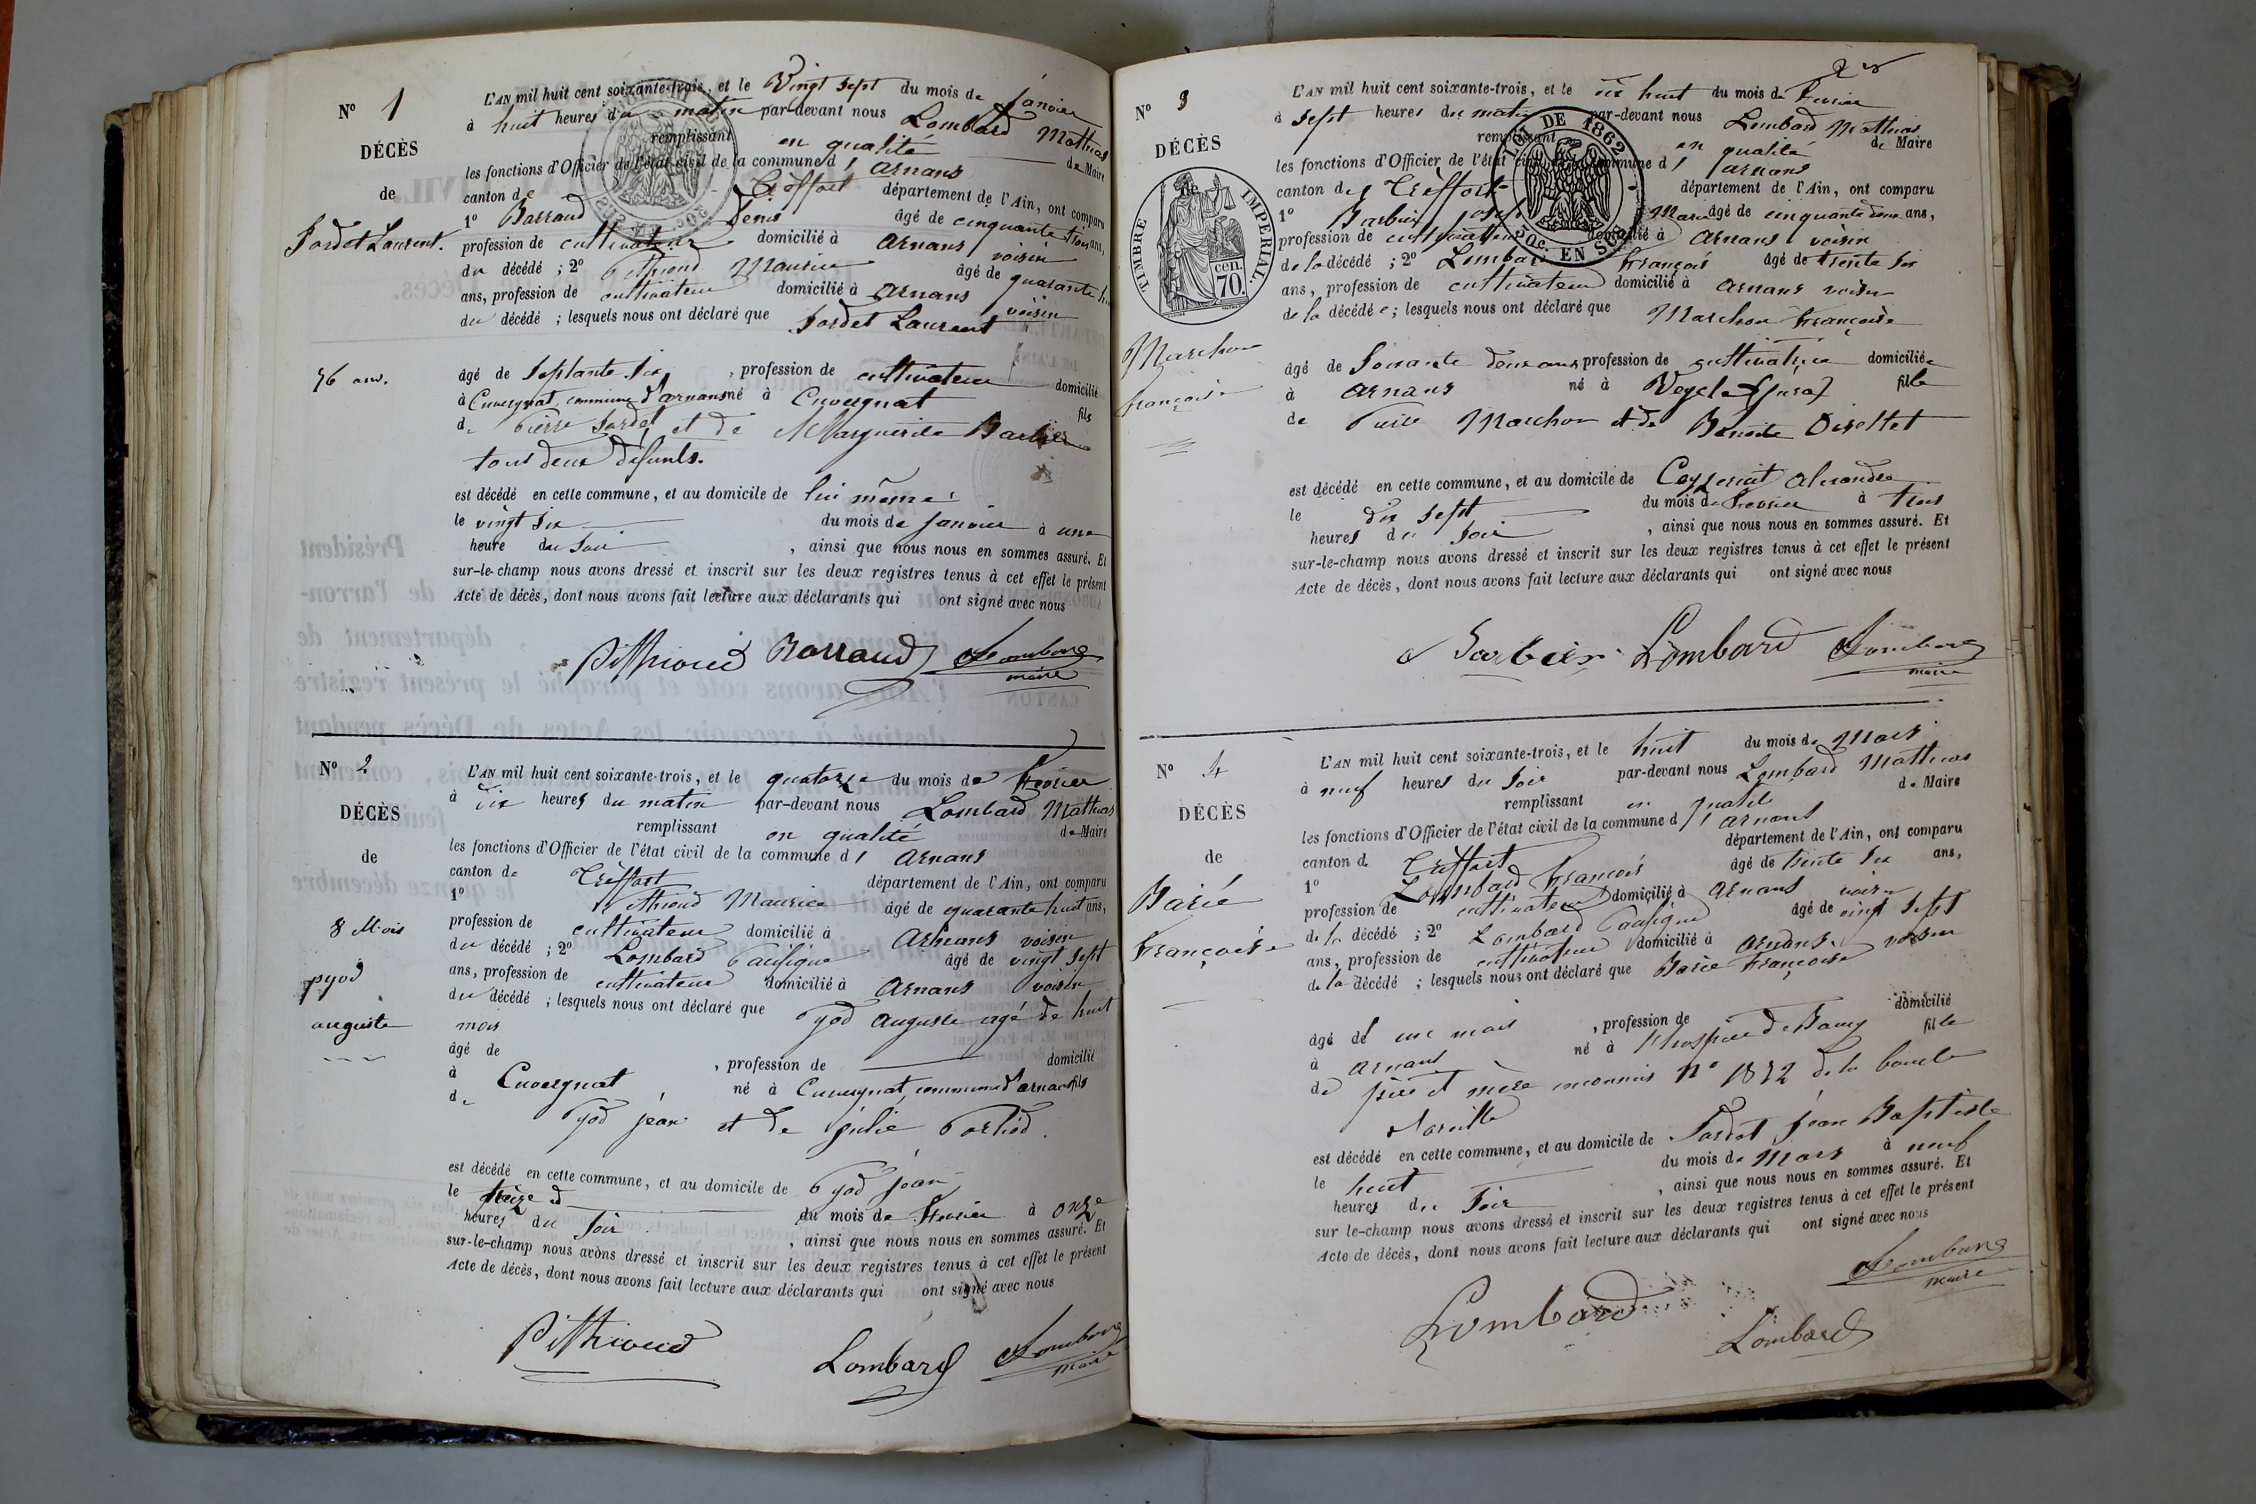 N° 1
DÉCÈS
de
Jordet Laurent.
76 ans.
L'AN mil huit cent soixante-trois, et le Vingt sept du mois de janvier
à huit heures du matin par-devant nous Lombard Mathias
remplissant en qualité de Maire
les fonctions d'Officier de l'état civil de la commune d' Arnans
canton de Tréffort département de l'Ain, ont comparu
1° Barraud Denis âgé de cinquante trois ans,
profession de cultivateur domicilié à Arnans voisin
du décédé ; 2° Pithioud Maurice âgé de quarante
ans, profession de cultivateur domicilié à Arnans voisin
du décédé ; lesquels nous ont déclaré que Jordet Laurent
âgé de Septante six , profession de cultivateur domicilié
à Cuvergnat commune d'arnans né à Cuvergnat fils
de Pierre Jordet et de Marguerite Barbier
tous deux défunts.
est décédé en cette commune, et au domicile de lui même
le vingt six du mois de janvier à une
heure du Soir , ainsi que nous nous en sommes assuré. Et
sur-le-champ nous avons dressé et inscrit sur les deux registres tenus à cet effet le présent
Acte de décès, dont nous avons fait lecture aux déclarants qui ont signé avec nous
Pithioud Barraud Lombard
maire
N° 2
DÉCÈS
de
8 Mois
pyod
auguste
L'AN mil huit cent soixante-trois, et le quatorze du mois de Fevrier
à Dix heures du matin par-devant nous Lombard Mathias
remplissant en qualité de Maire
les fonctions d'Officier de l'état civil de la commune d' Arnans
canton de Tréffort département de l'Ain, ont comparu
1° Pithioud Maurice âgé de quarante huit ans,
profession de cultivateur domicilié à Arnans voisin
du décédé ; 2° Lombard Pacifique âgé de vingt sept
ans, profession de cultivateur domicilié à Arnans voisin
du décédé ; lesquels nous ont déclaré que Pyod Auguste agé de huit
mois
âgé de , profession de domicilié
à Cuvergnat né à Cuvergnat, commune d'arnans fils
de Pyod jean et de julie
est décédé en cette commune, et au domicile de Pyod jean
le treize du mois de Fevrier à onze
heures du Soir , ainsi que nous nous en sommes assuré. Et
sur-le-champ nous avons dressé et inscrit sur les deux registres tenus à cet effet le présent
Acte de décès, dont nous avons fait lecture aux déclarants qui ont signé avec nous
Pithioud Lombard Lombard
maire
N° 3
DÉCÈS
TIMBRE IMPÉRIAL.
70. cen.
Marchon
françoise
LOI DE 1862
50c. EN SUS
L'AN mil huit cent soixante-trois, et le dix huit du mois de Fevrier
à Sept heures du matin par-devant nous Lombard Mathias
remplissant en qualité de Maire
les fonctions d'Officier de l'état civil de la commune d' Arnans
canton de Tréffort département de l'Ain, ont comparu
1° Barbier Joseph Marie âgé de cinquante deux ans,
profession de cultivateur domicilié à Arnans voisin
de la décédé ; 2° Lombard françois âgé de trente six
ans, profession de cultivateur domicilié à Arnans voisin
de la décédé e ; lesquels nous ont déclaré que Marchon françoise
âgé de Soixante deux ans profession de cultivatrice domiciliée
à Arnans né à (jura) fille
de Pierre Marchon et de Benoite
est décédé en cette commune, et au domicile de Ceyzeriat
le dix sept du mois de Fevrier à trois
heures du Soir , ainsi que nous nous en sommes assuré. Et
sur-le-champ nous avons dressé et inscrit sur les deux registres tenus à cet effet le présent
Acte de décès, dont nous avons fait lecture aux déclarants qui ont signé avec nous
Barbier Lombard Lombard
maire
N° 4
DÉCÈS
de
Barié
françoise
L'AN mil huit cent soixante-trois, et le huit du mois de Mars
à neuf heures du Soir par-devant nous Lombard Mathias
remplissant en qualité de Maire
les fonctions d'Officier de l'état civil de la commune d' Arnans
canton de Tréffort département de l'Ain, ont comparu
1° Lombard françois âgé de trente six ans,
profession de cultivateur domicilié à Arnans voisin
de la décédé ; 2° Lombard Pacifique âgé de vingt sept
ans, profession de cultivateur domicilié à Arnans voisin
de la décédé ; lesquels nous ont déclaré que Barié françoise
âgé de un mois , profession de domicilié
à Arnans né à l'hospice de Bourg fille
de père et mère inconnus n° 1832 de la boucle
d'oreille
est décédé en cette commune, et au domicile de Jordet jean Baptiste
le huit du mois de Mars à neuf
heures du Soir , ainsi que nous nous en sommes assuré. Et
sur le-champ nous avons dressé et inscrit sur les deux registres tenus à cet effet le présent
Acte de décès, dont nous avons fait lecture aux déclarants qui ont signé avec nous
Lombard
maire
Lombard Lombard